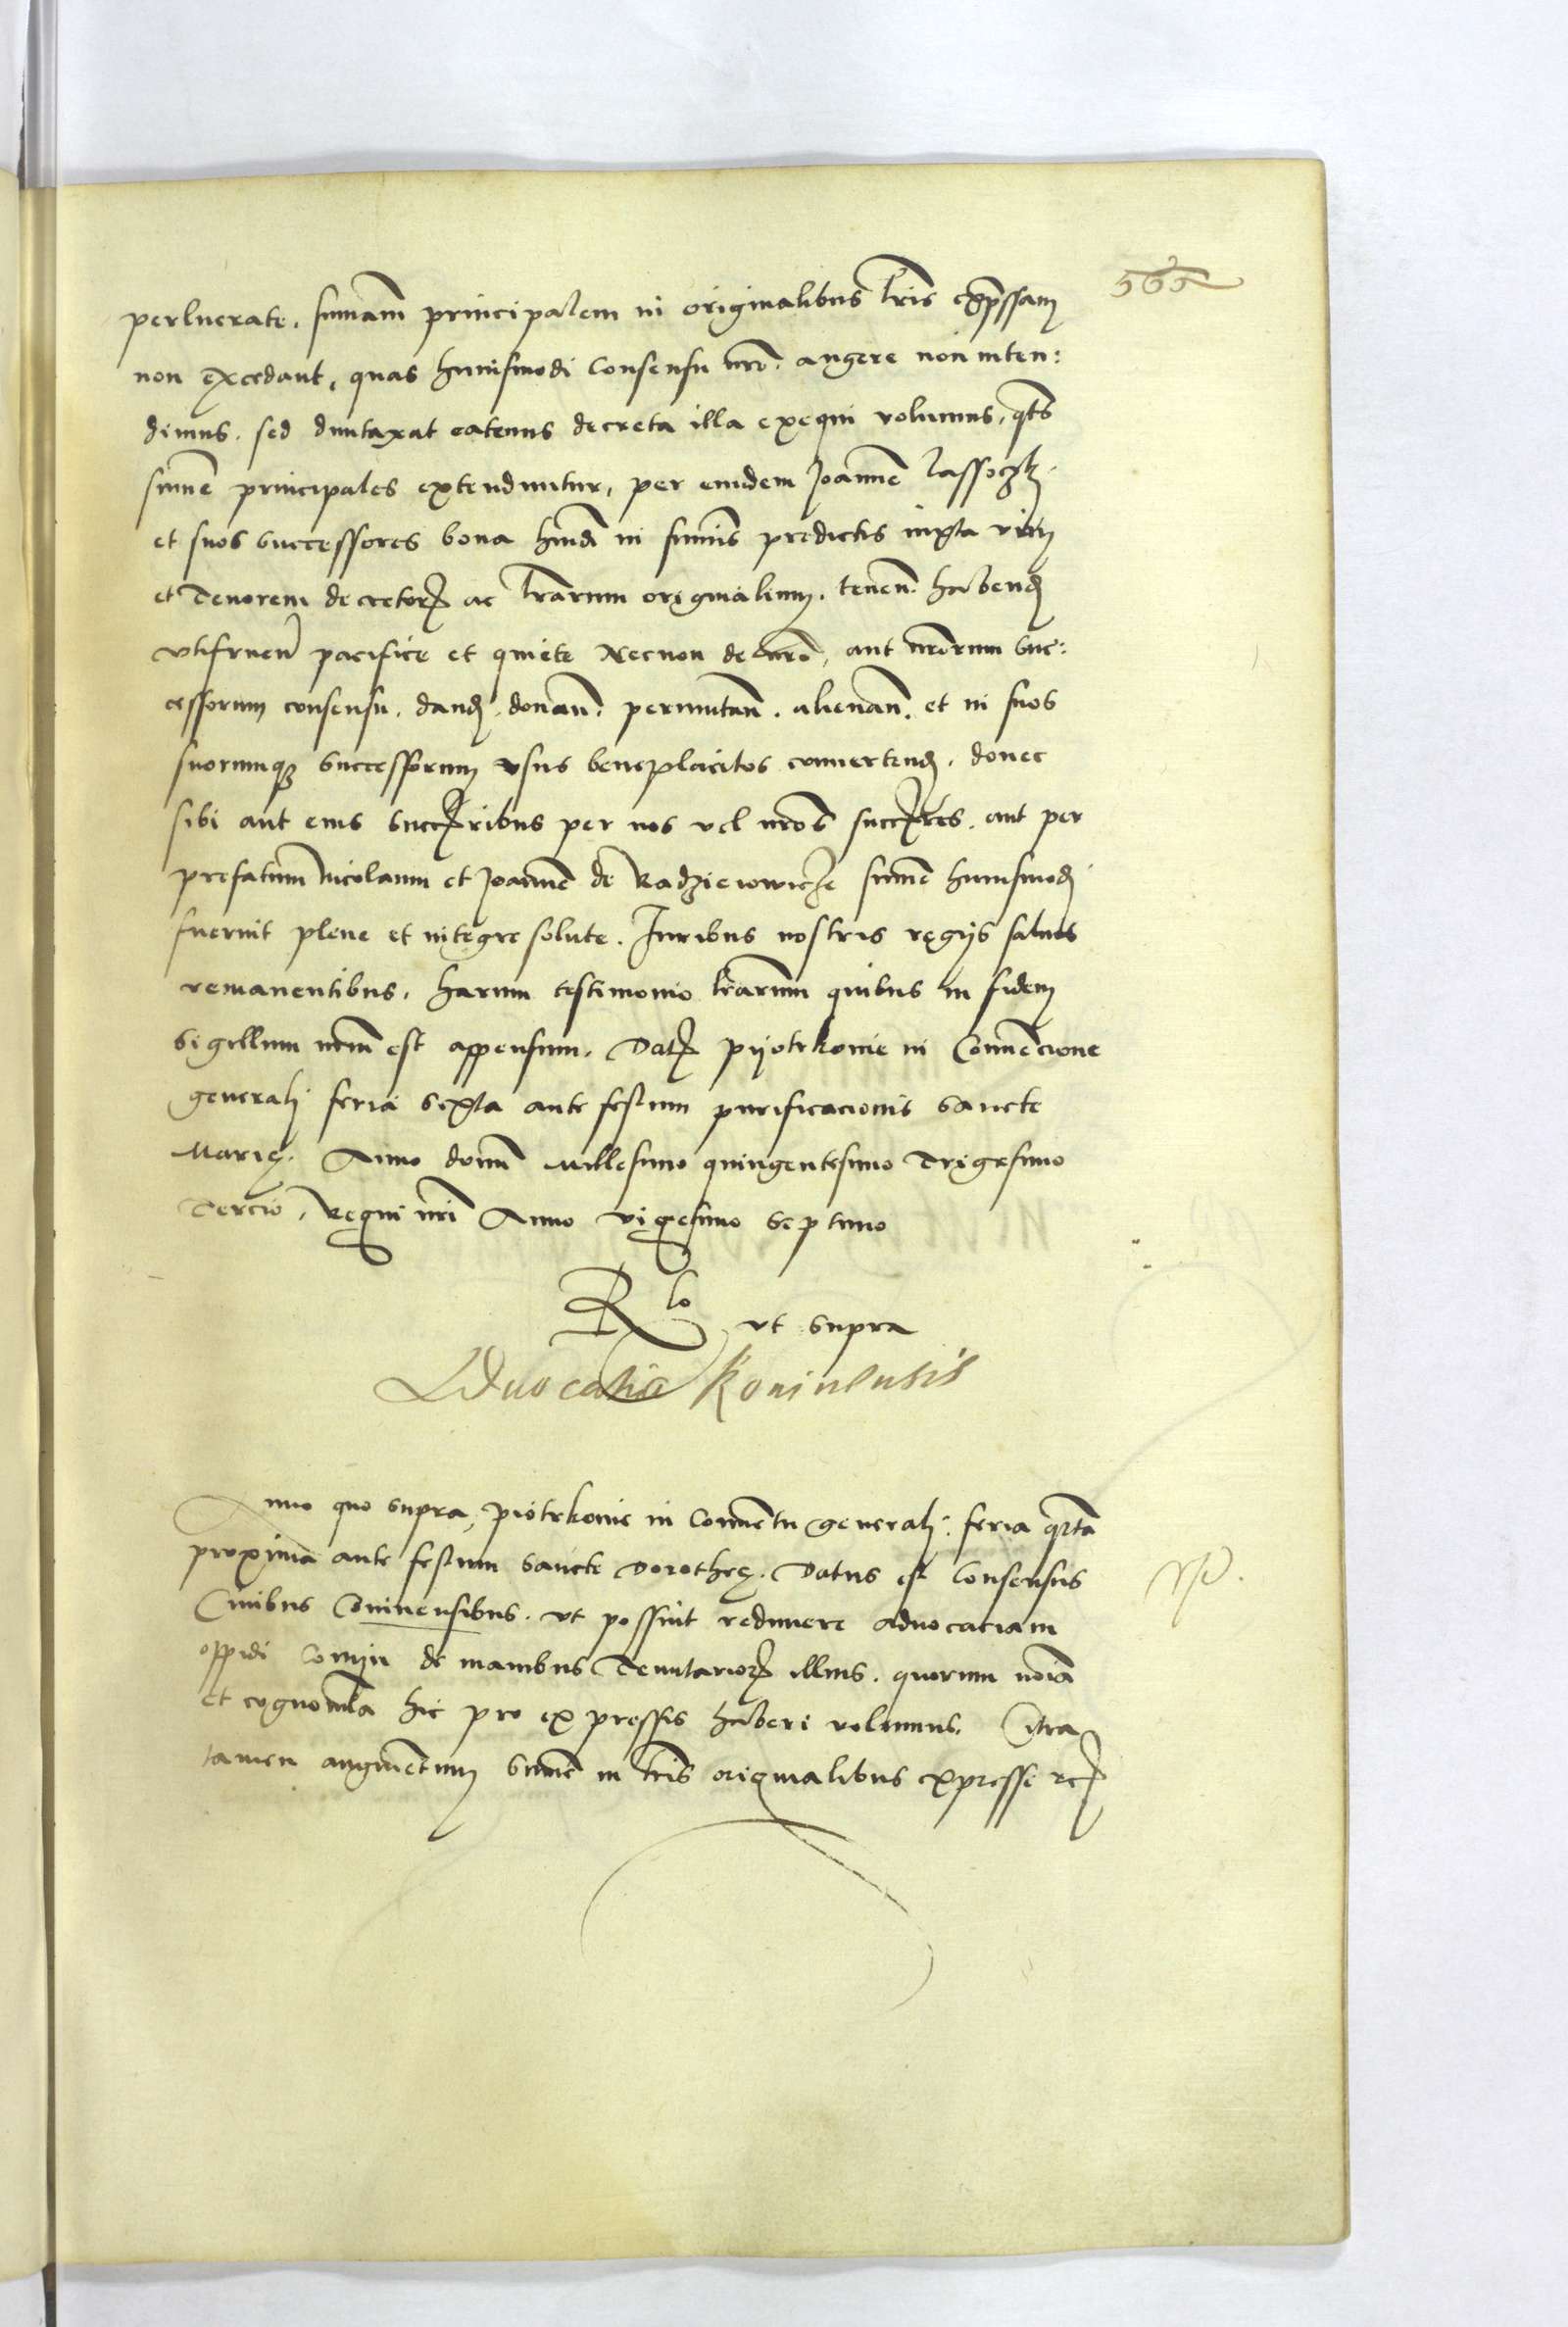 565
perlucrate. sumam principalem in originalibus lris expssam
non excedant, quas huiusmodi consensu nro. augere non inten:
dimus. sed duntaxat eatenus decreta illa exequi volumus, qts
sume principales extenduntur, per eundem Joanne Lassoczky
et suos successores bona hmdi in sumis predictis iuxta vim
et Tenorem decretor ac lrarum originalium. tenen. habend
vtifruen pacifice et quiete Necnon de nro, aut nrorum suc:
cessorum consensu. dand. donan. permutan. alienan. et in suos
suorumq successorum vsus beneplacitos convertend. donec
sibi aut eius succribus per nos vel nros succres. aut per
prefatum Nicolaum et Joanne de Radzieiowicze sume huiusmodi
fuerint plene et integre solute. Iuribus nostris regijs saluis
remanentibus. harum testimonio lrarum quibus in fidem
sigillum nrm est appensum. Dat pijotrkovie in Convencione
generali feria sexta ante festum purificacionis sancte
Marie. Anno domi Millesimo quingentesimo Trigesimo
Tercio, Regni nri Anno vigesimo septimo
Rlo vt supra
Advocatia Koninensis
Anno quo supra, piotrkovie in Conventu generali feria qrta
proxima ante festum sancte Dorothee. Datus est Consensus
Civibus Coninensibus. vt possint redimere advocatiam
oppidi Conijn de manibus Tenutarior illius. quorum noia
et cognomina hic pro expressis haberi volumus. Citra
tamen augmentum sume in lris originalibus expresse rc